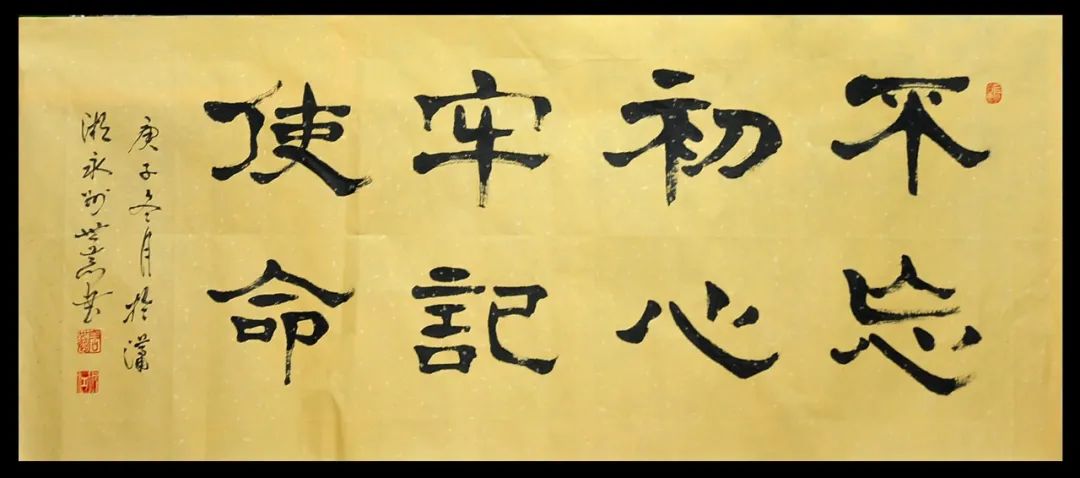 不忘
初心
牢記
使命
庚子冬月於瀟
湘永州
書